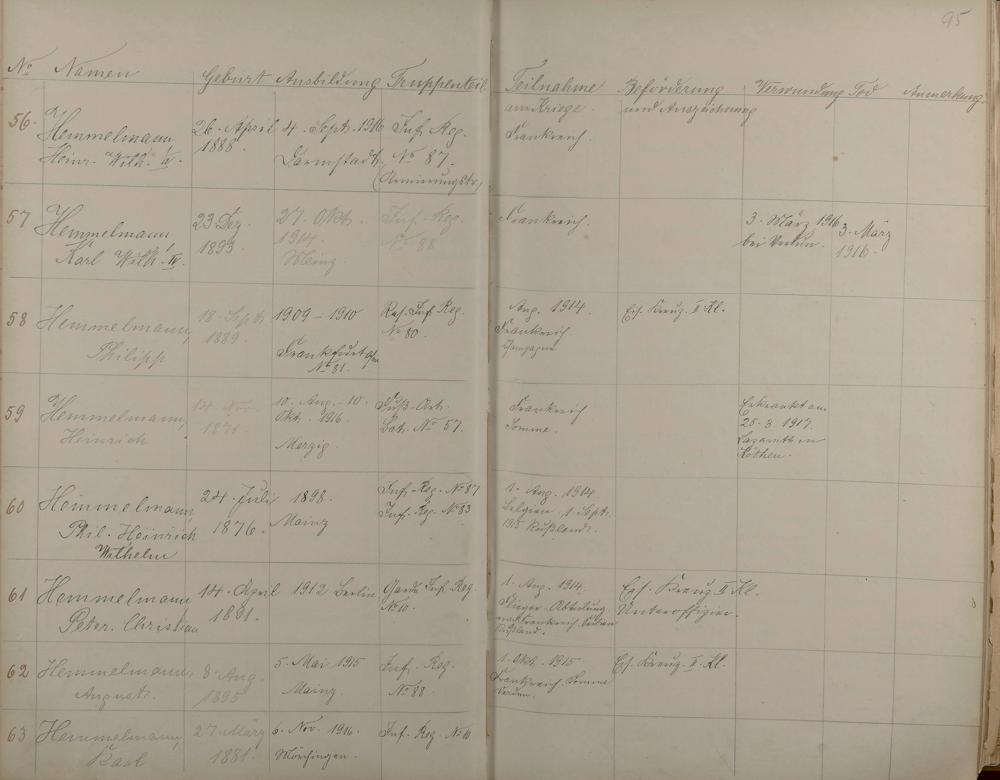 95
No Namen Geburt Ausbildung Truppenteil Teilnahme am Kriege. Beförderung und Auszeichnung Verwundung Tod Anmerkung.
56. Hemmelmann, Heinr. Wilh. 26. April 1888. 4. Sept. 1916 Darmstadt, Inf. Reg. No 87. Frankreich.
57 Hemmelmann, Karl Wilh. IV. 23 Dez. 1893 27. Okt. 1914. Mainz. Inf. Reg. No 88 Frankreich. 3. März 1916 bei Verdun. 3. März 1916.
58 Hemmelmann, Philipp 18. Sept. 1889. 1909 – 1910 Frankfurt No 81. Res. Inf. Reg. No 80. Aug. 1914. Frankreich. Eis. Kreuz. II Kl.
59 Hemmelmann, Heinrich 14. Nov. 10. Aug. - 10. Okt. 1916. Merzig. Fuß-Art. Bat. No 57. Frankreich Somme. Erkrankt am 25. 3. 1917. Lazarett in Köthen.
60 Hemmelmann, Phil. Heinrich Wilhelm 24. Juli 1876. 1898. Mainz Inf.-Reg. No 87 Inf.-Reg. No 83 1. Aug. 1914 Belgien 1. Sept. 1915 Rußland.
61 Hemmelmann, Peter. Christian 14. April 1912 Berlin Garde Inf. Reg. 1. Aug. 1914. Flieger-Abteilung Frankreich. Rußland. Eis. Kreuz II Kl. Unteroffizier.
62 Hemmelmann, August. 8. Aug. 1895 5. Mai 1915 Mainz. Inf. Reg. No 88. 1. Okt. 1915 Frankreich Somme Verdun. Eis. Kreuz. II. Kl.
63 Hemmelmann, Karl 27. März 1881. 6. Nov. 1916. Mörchingen. Inf. Reg. No